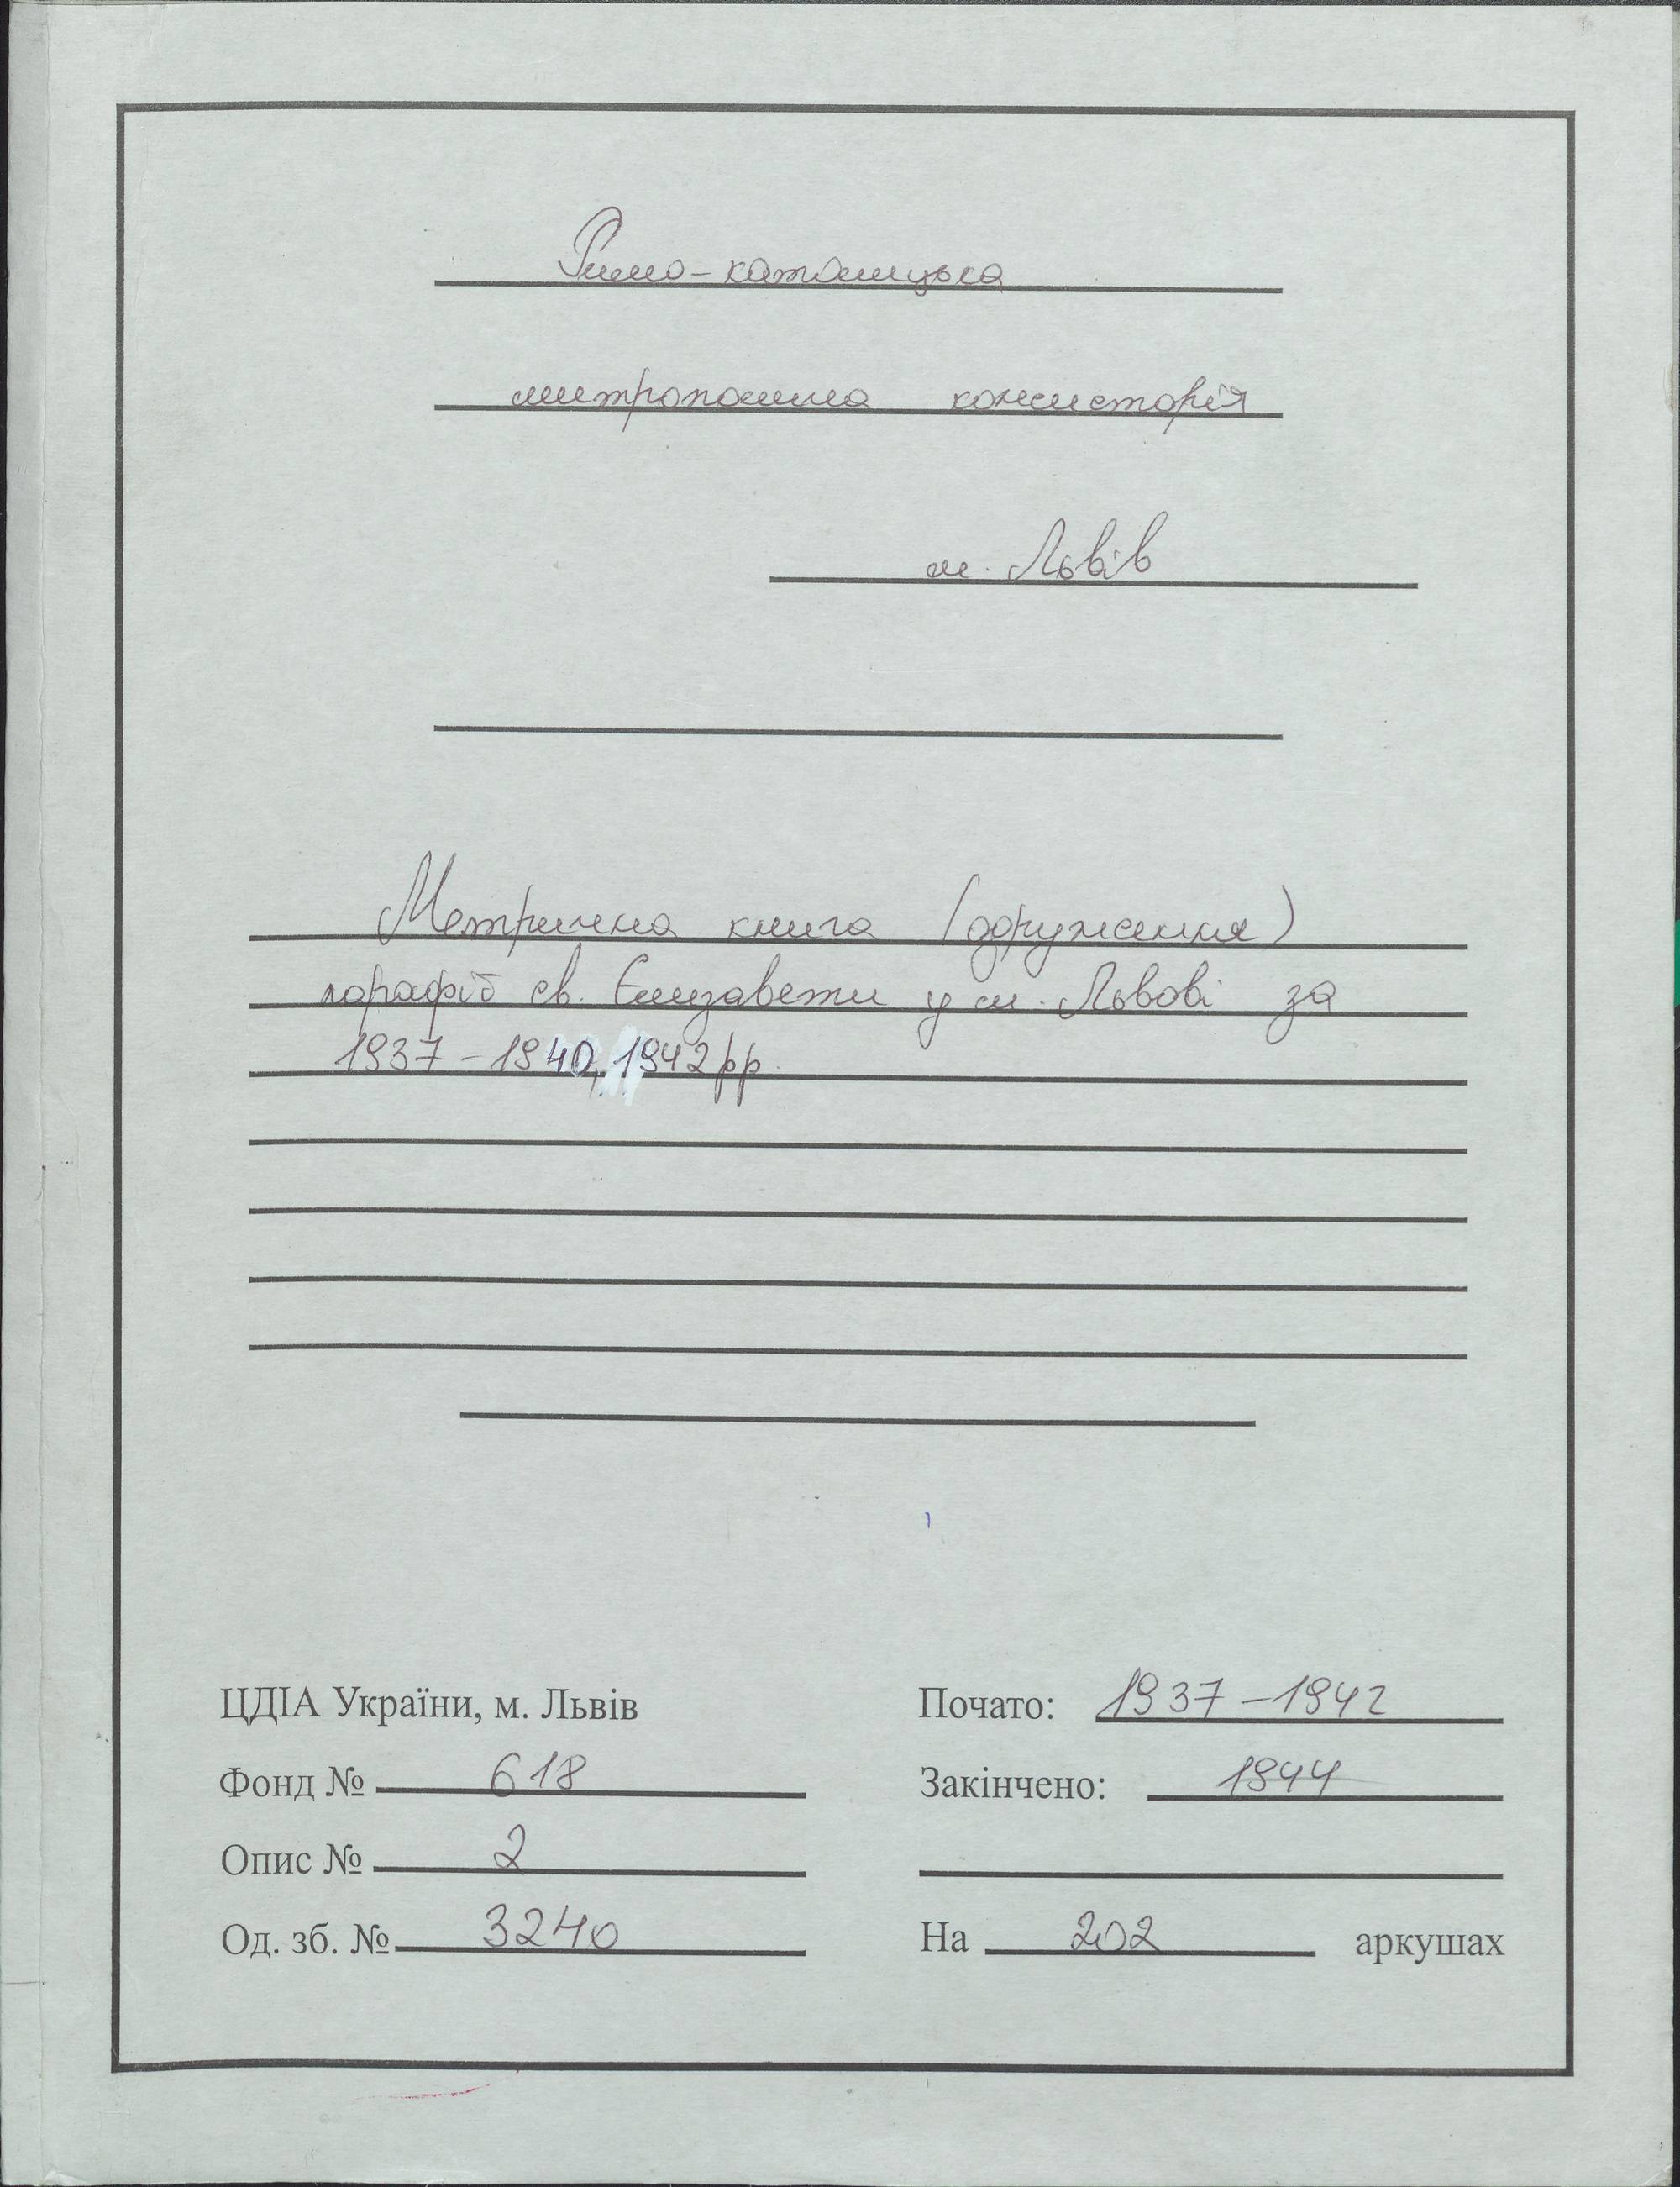 Римо-католицька
митрополича консисторія
м. Львів
Метрична книга (одруження)
парафії св. Єлизавети у м. Львові за
1937-1940, 1942 рр.
ЦДІА України, м. Львів
Фонд № 618
Опис № 2
Од. зб. № 3240
Почато: 1937-1942
Закінчено: 1944
На 202 аркушах